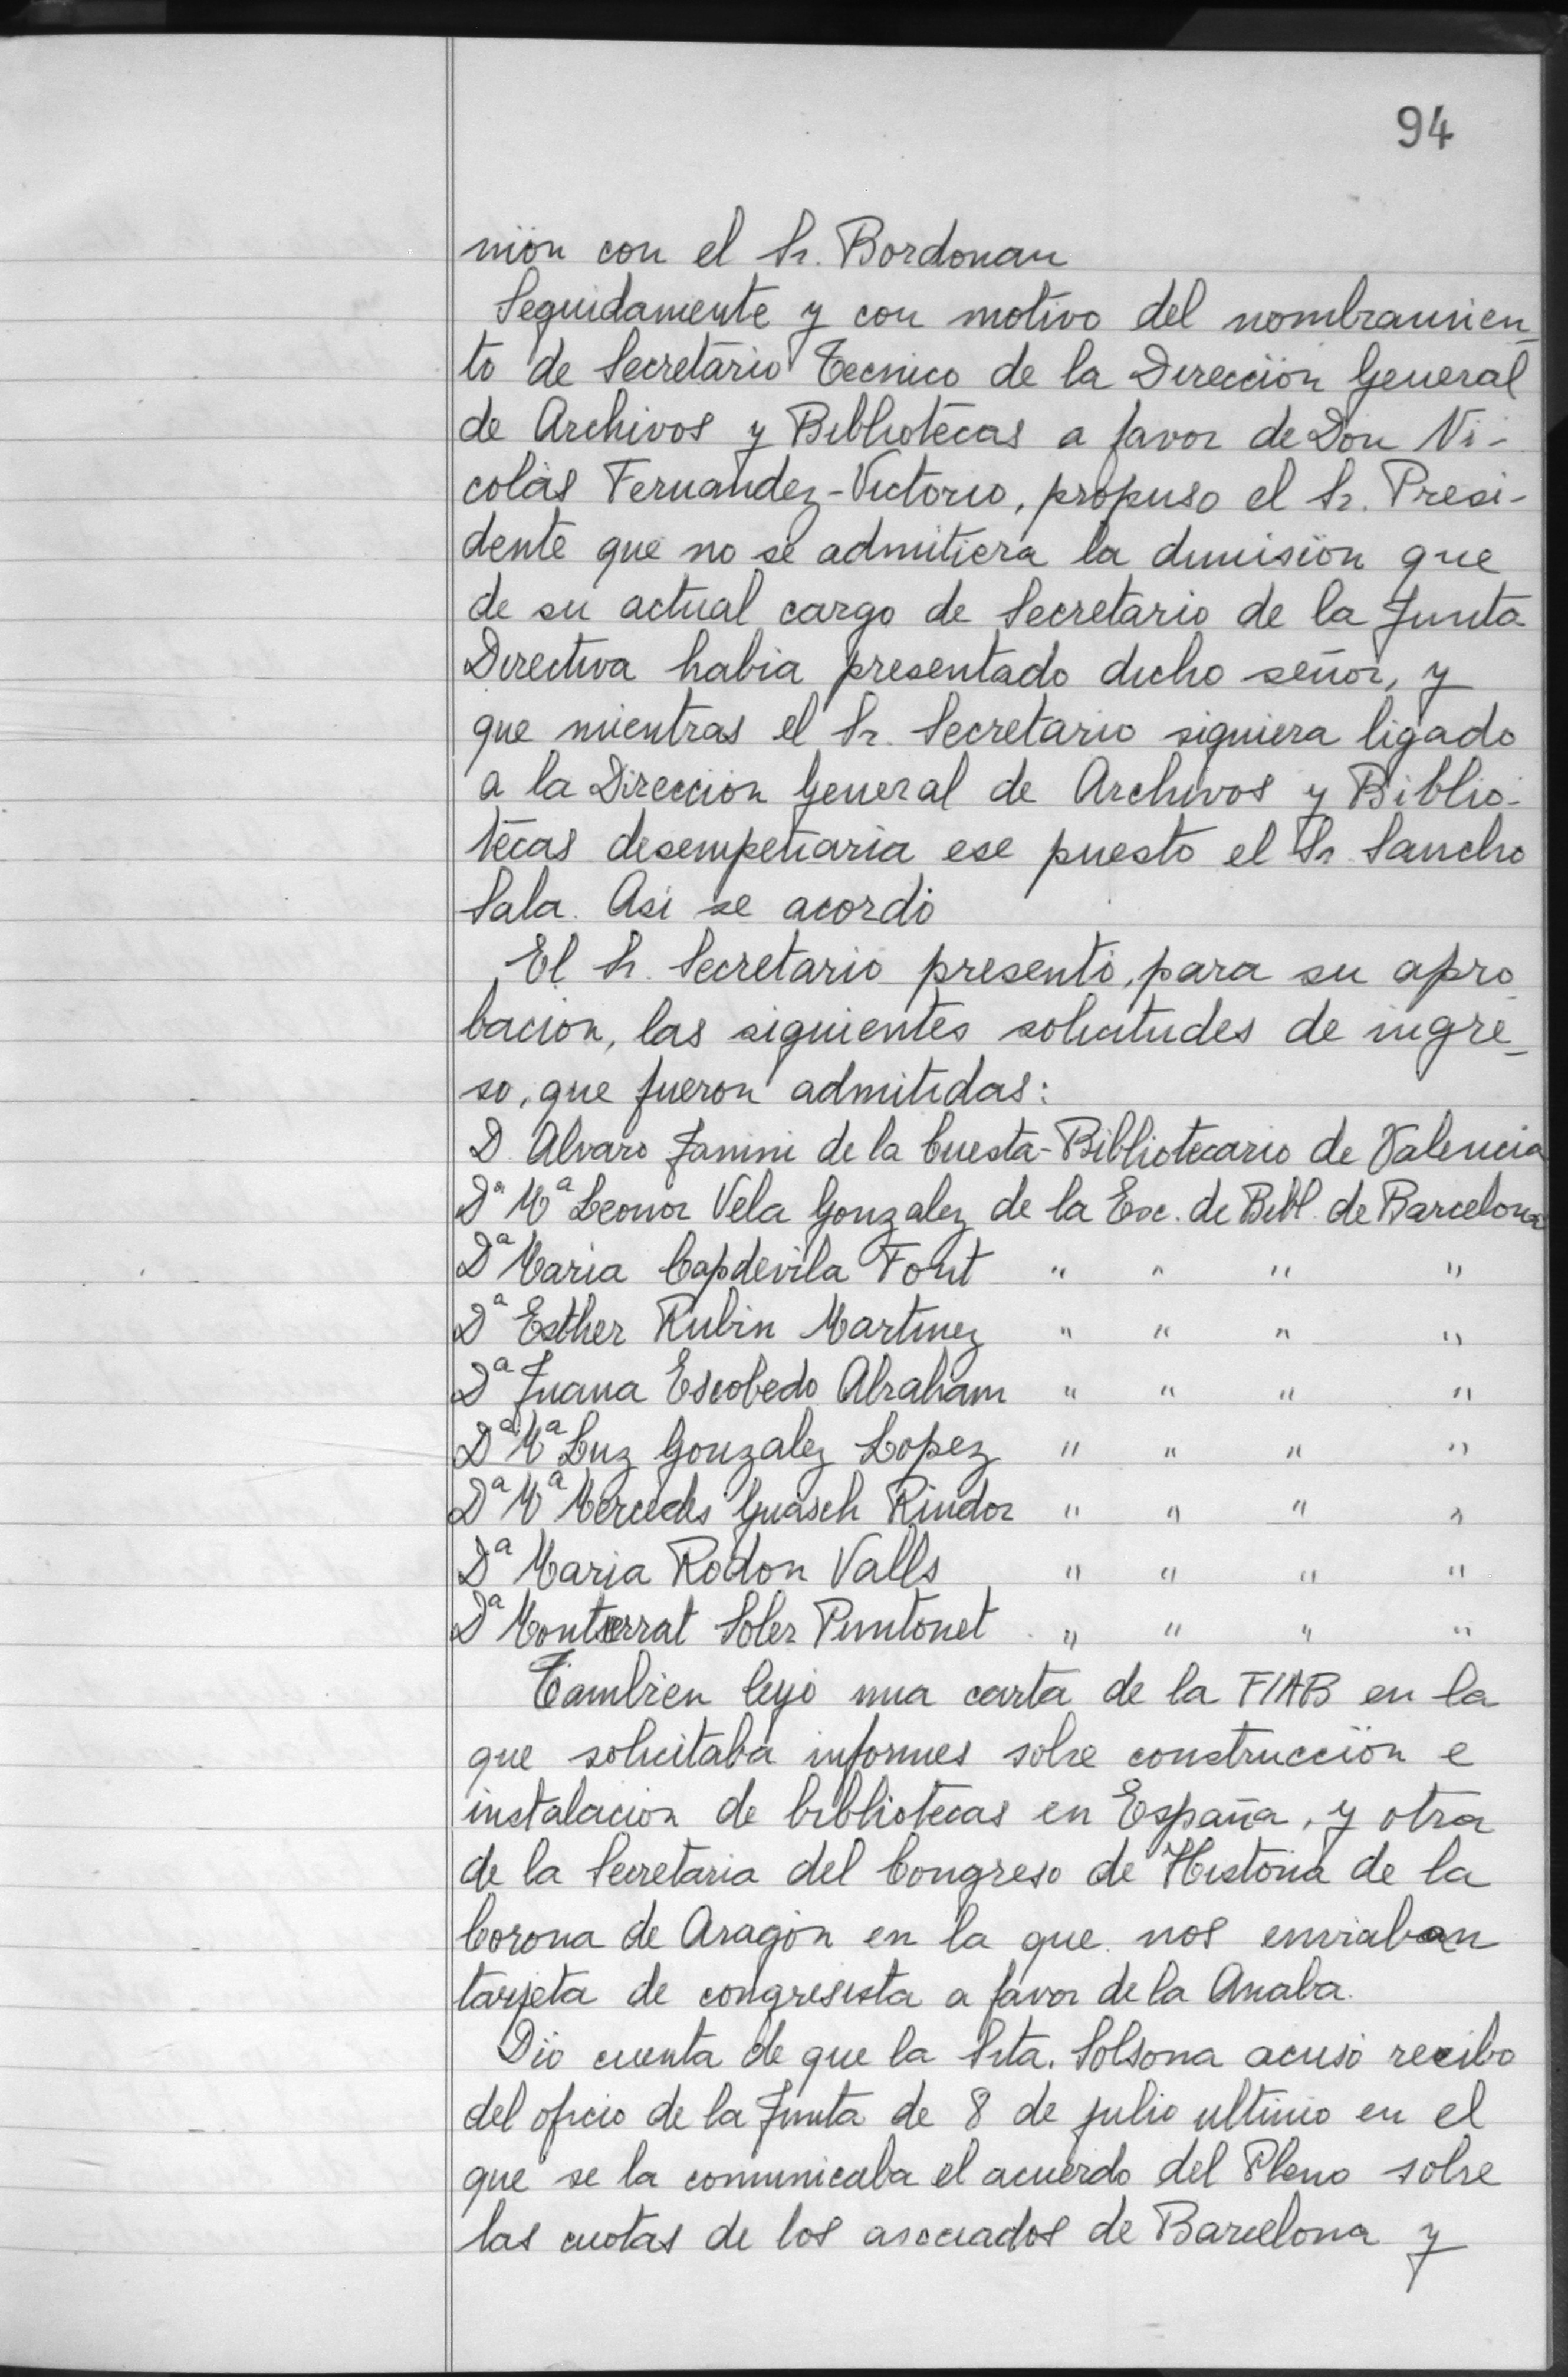 94
nión con el Sr. Bordonau
Seguidamente y con motivo del nombramien_
to de Secretario Tecnico de la Dirección General
de Archivos y Bibliotecas a favor de Don Ni-
colás Fernandez-Victorio, propuso el Sr. Presi-
dente que no se admitiera la dimisión que
de su actual cargo de Secretario de la Junta
Directiva habia presentado dicho señor, y
que mientras el Sr. Secretario siguiera ligado
a la Dirección General de Archivos y Biblio-
tecas desempeñaria ese puesto el Sr. Sancho
Sala. Asi se acordó
El Sr. Secretario presentó, para su apro_
bación, las siguientes solicitudes de ingre_
so, que fueron admitidas:
D. Alvaro Janini de la Cuesta-Bibliotecario de Valencia
Dª Mª Leonor Vela Gonzalez de la Esc. de Bibl. de Barcelona
Dª Maria Capdevila Font " " " "
Dª Esther Rubin Martinez " " " "
Dª Juana Escobedo Abraham " " " "
Dª Mª Luz Gonzalez Lopez " " " "
Dª Mª Mercedes Guasch Rindor " " " "
Dª Maria Rodon Valls " " " "
Dª Montserrat Soler Puntonet " " " "
Tambien leyó una carta de la FIAB en la
que solicitaba informes sobre construcción e
instalación de bibliotecas en España, y otra
de la Secretaria del Congreso de Historia de la
Corona de Aragón en la que nos enviaban
tarjeta de congresista a favor de la Anaba.
Dió cuenta de que la Srta. Solsona acusó recibo
del oficio de la Junta de 8 de julio ultimo en el
que se la comunicaba el acuerdo del Pleno sobre
las cuotas de los asociados de Barcelona y